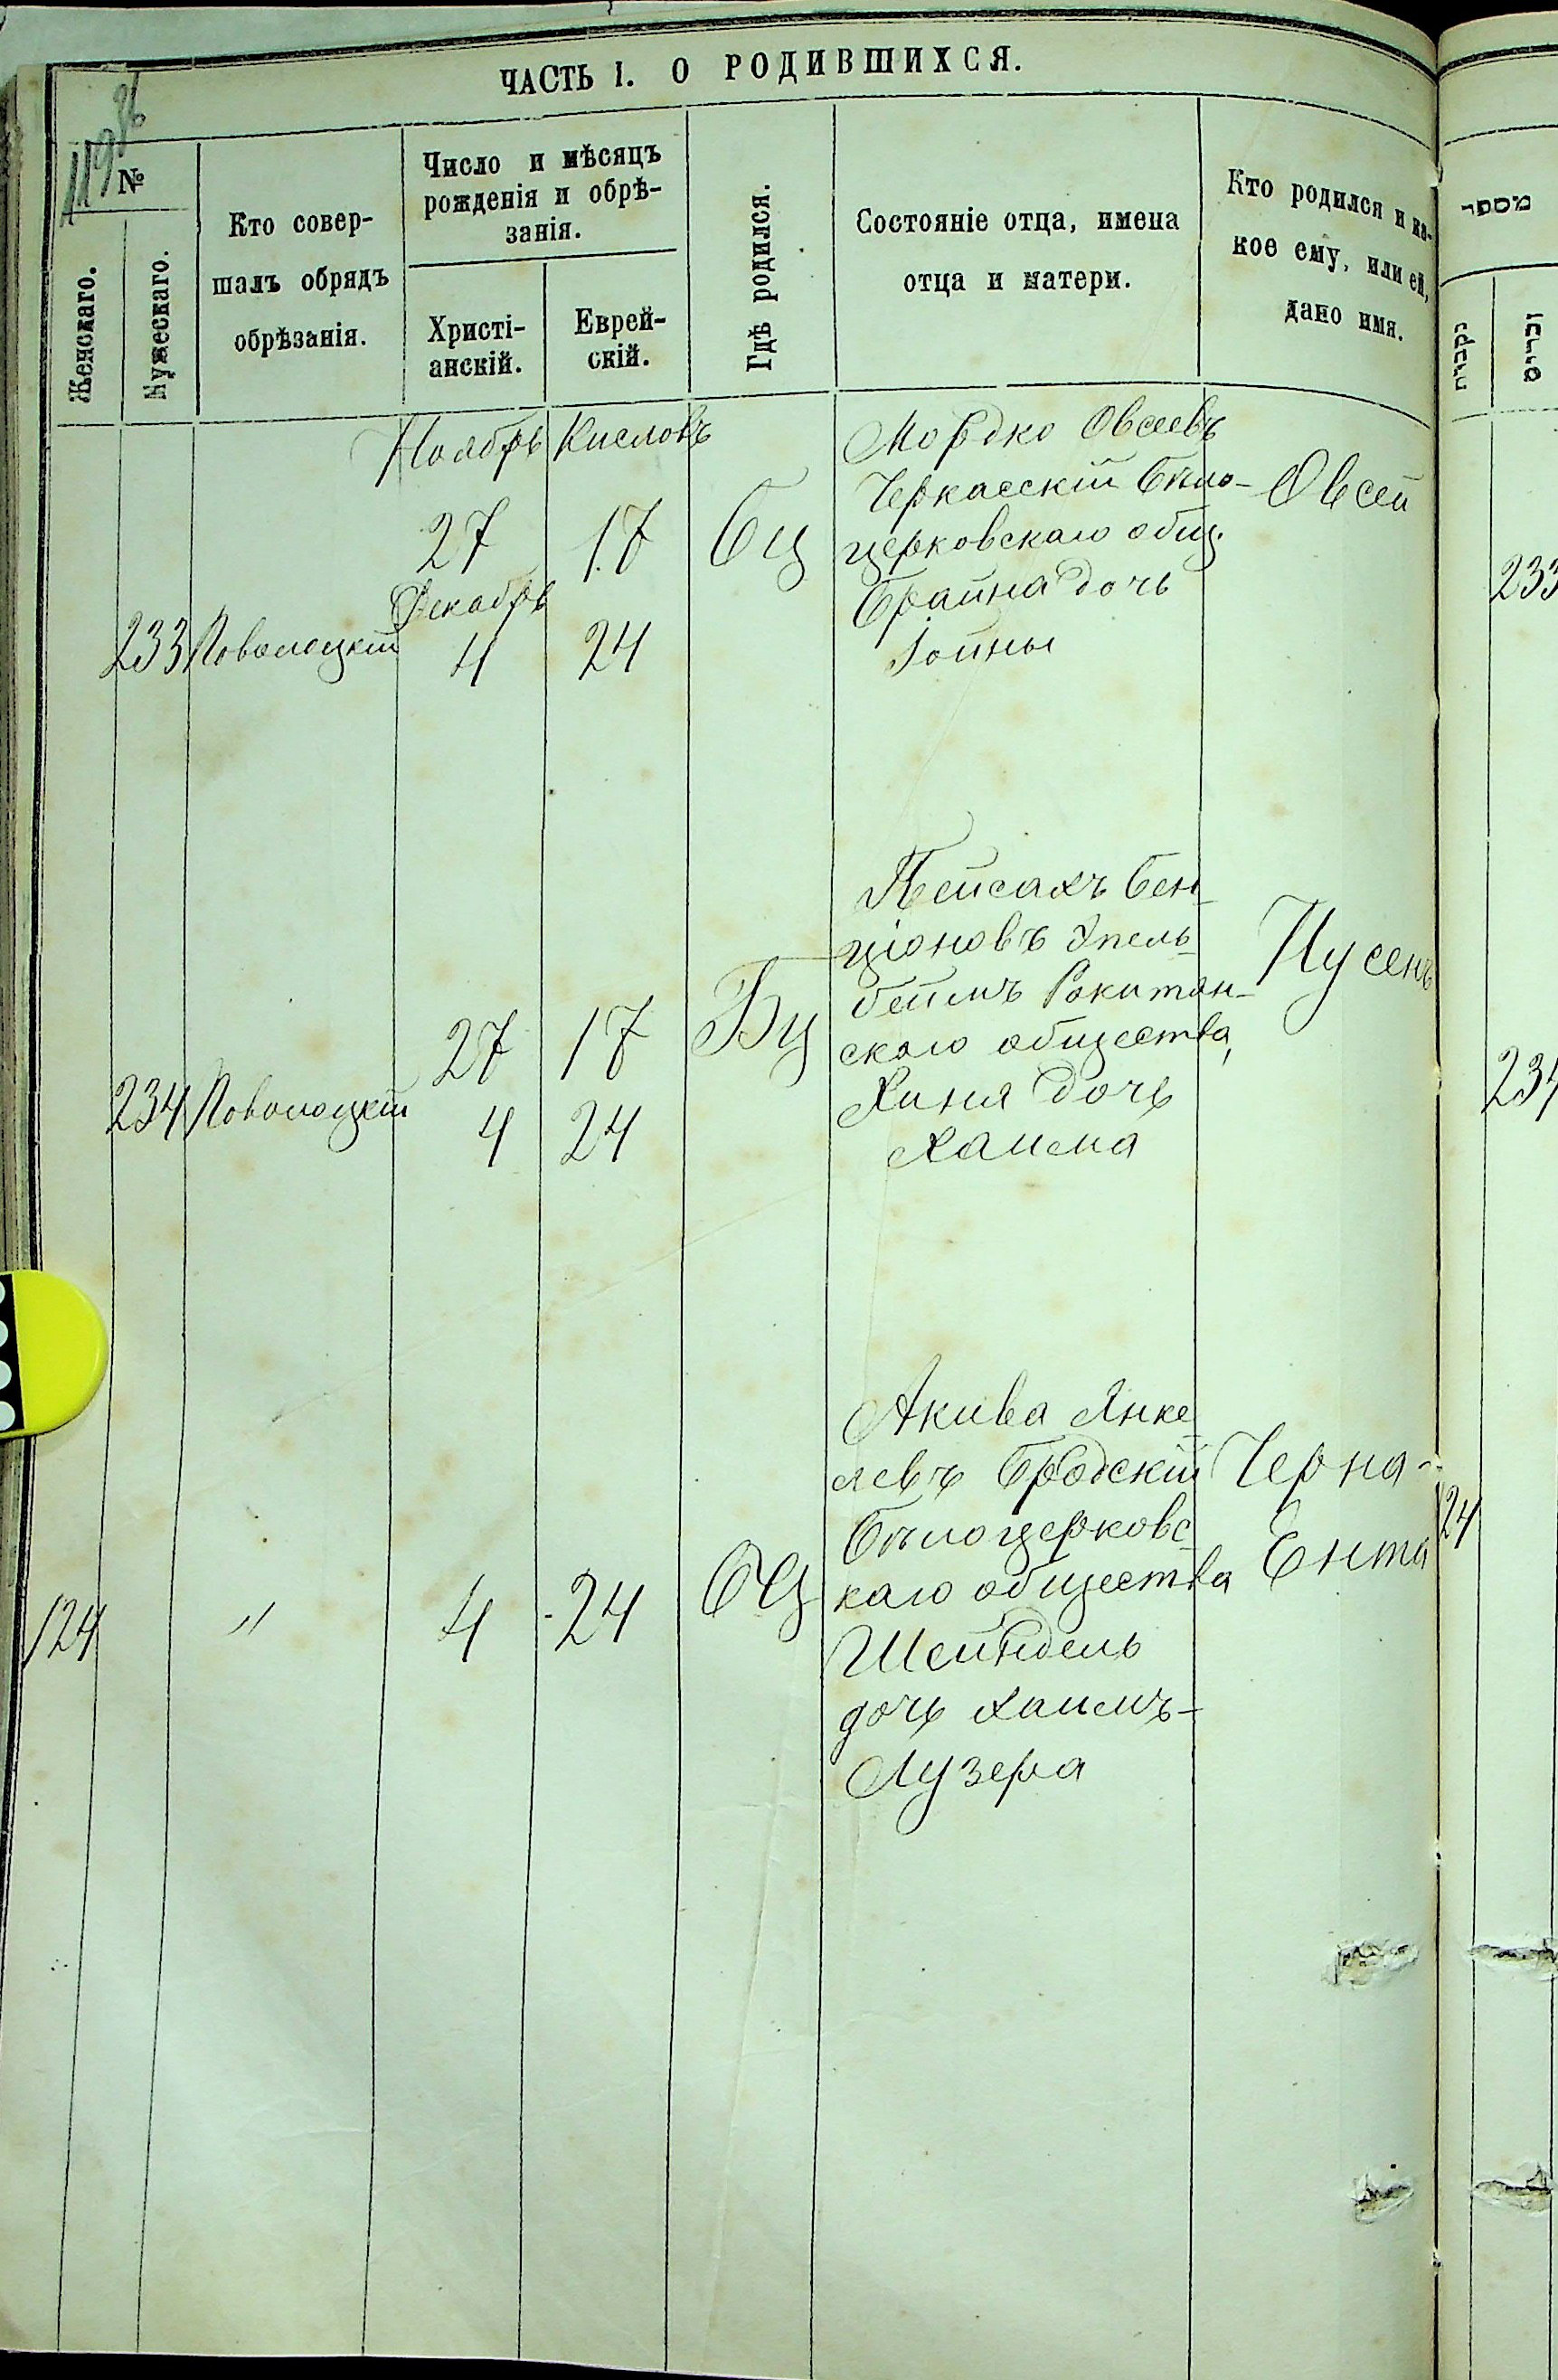 ЧАСТЬ I. О РОДИВШИХСЯ.
119
№
Женскаго.
Мужескаго.
Кто совер-
шалъ обрядъ
обрѣзанія.
Число и мѣсяцъ
рожденія и обрѣ-
занія.
Христі-
анскій.
Еврей-
скій.
Гдѣ родился.
Состояніе отца, имена
отца и матери.
Кто родился и ка-
кое ему, или ей,
дано имя.
Ноябрь Кисловъ
233 Поволоцкій
27 17
Декабрь
4 24
Бц
Мордко Овсеевъ
Черкасскій Бѣло-
церковскаго общ.
Брайна дочь
Іойны
Овсей
234 Поволоцкій
27 17
4 24
Бц
Пейсахъ Бен-
ціоновъ Эпель-
беймъ Рокитян-
скаго общества,
Хиня дочь
Хаима
Нусенъ
124 " 4 24 Бц
Акива Янке
левъ Бродскій
Бѣлоцерковс-
каго общества
Шейндель
дочь Хаимъ-
Лузера
Черна-
Ента
מספר
נקבות
זכרים
233
234
24